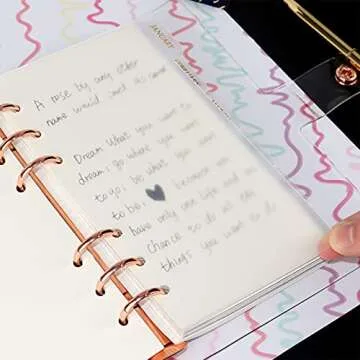 JANUARY
A rose by any other
name would smell as sweet
Dream what you want to
dream, go where you want
to go, be what you want
to be, because you
have only one life and one
chance to do all the
things you want to do